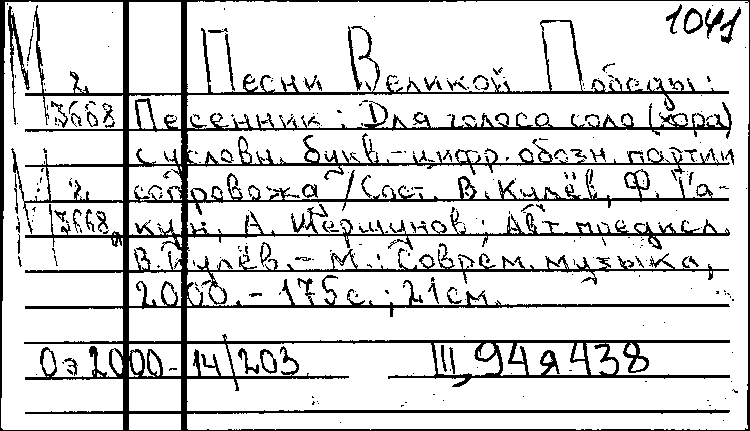 1041
М 2 Песни Великой Победы:
3668 Песенник: Для голоса соло (хора)
с условн. букв.-цифр. обозн. партии
М 2 сопровожд /Сост. В.Кулёв, Ф. Ра-
3668а кун, А. Шершунов; Авт. предисл.
В.Кулёв.- М.: Соврем. музыка,
2000.- 175с.; 21см.
Оэ 2000-14/203 Щ,94я438